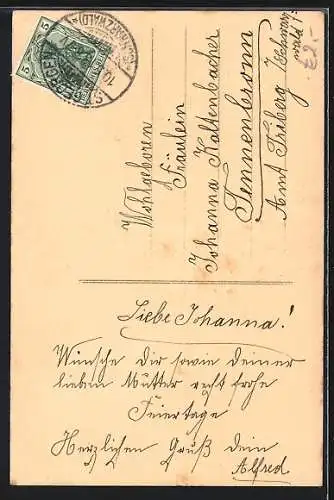 5 5
ST. GEORGEN
(SCHWARZWALD)
10
Wohlgeboren
Fräulein
Johanna Kaltenbacher
Tennenbronn
Amt Triberg /Schwarz-
wald/!
£2.-
Liebe Johanna!
Wünsche Dir sowie Deiner
lieben Mutter recht frohe
Feiertage
Herzlichen Gruß Dein
Alfred